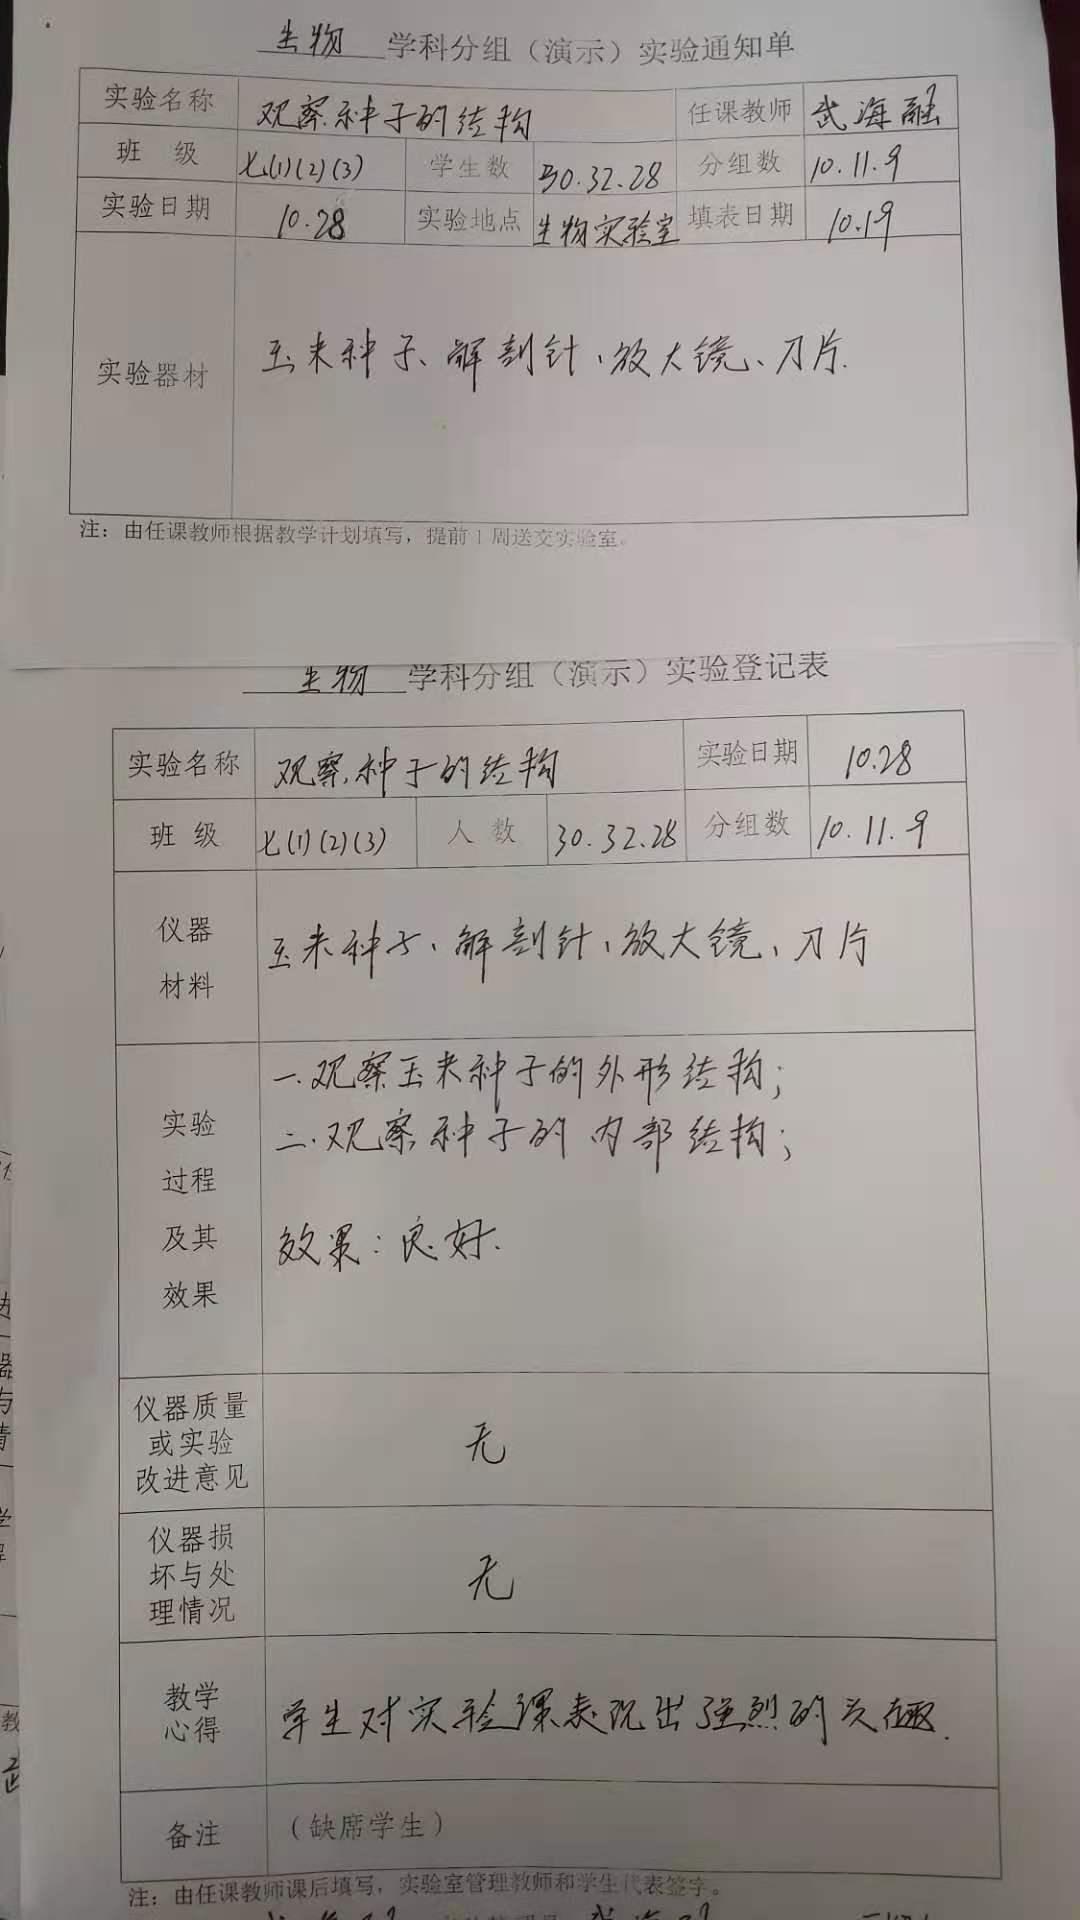 生物 学科分组（演示）实验通知单
实验名称 观察种子的结构 任课教师 武海融
班 级 七(1)(2)(3) 学生数 30.32.28 分组数 10.11.9
实验日期 10.28 实验地点 生物实验室 填表日期 10.19
实验器材 玉米种子、解剖针、放大镜、刀片.
注：由任课教师根据教学计划填写，提前1周送交实验室。
生物 学科分组（演示）实验登记表
实验名称 观察种子的结构 实验日期 10.28
班 级 七(1)(2)(3) 人 数 30.32.28 分组数 10.11.9
仪器
材料
玉米种子、解剖针、放大镜、刀片
实验
过程
及其
效果
一.观察玉米种子的外形结构；
二.观察种子的内部结构；
效果：良好.
仪器质量
或实验
改进意见
无
仪器损
坏与处
理情况
无
教学
心得
学生对实验课表现出强烈的兴趣.
备注 （缺席学生）
注：由任课教师课后填写，实验室管理教师和学生代表签字。